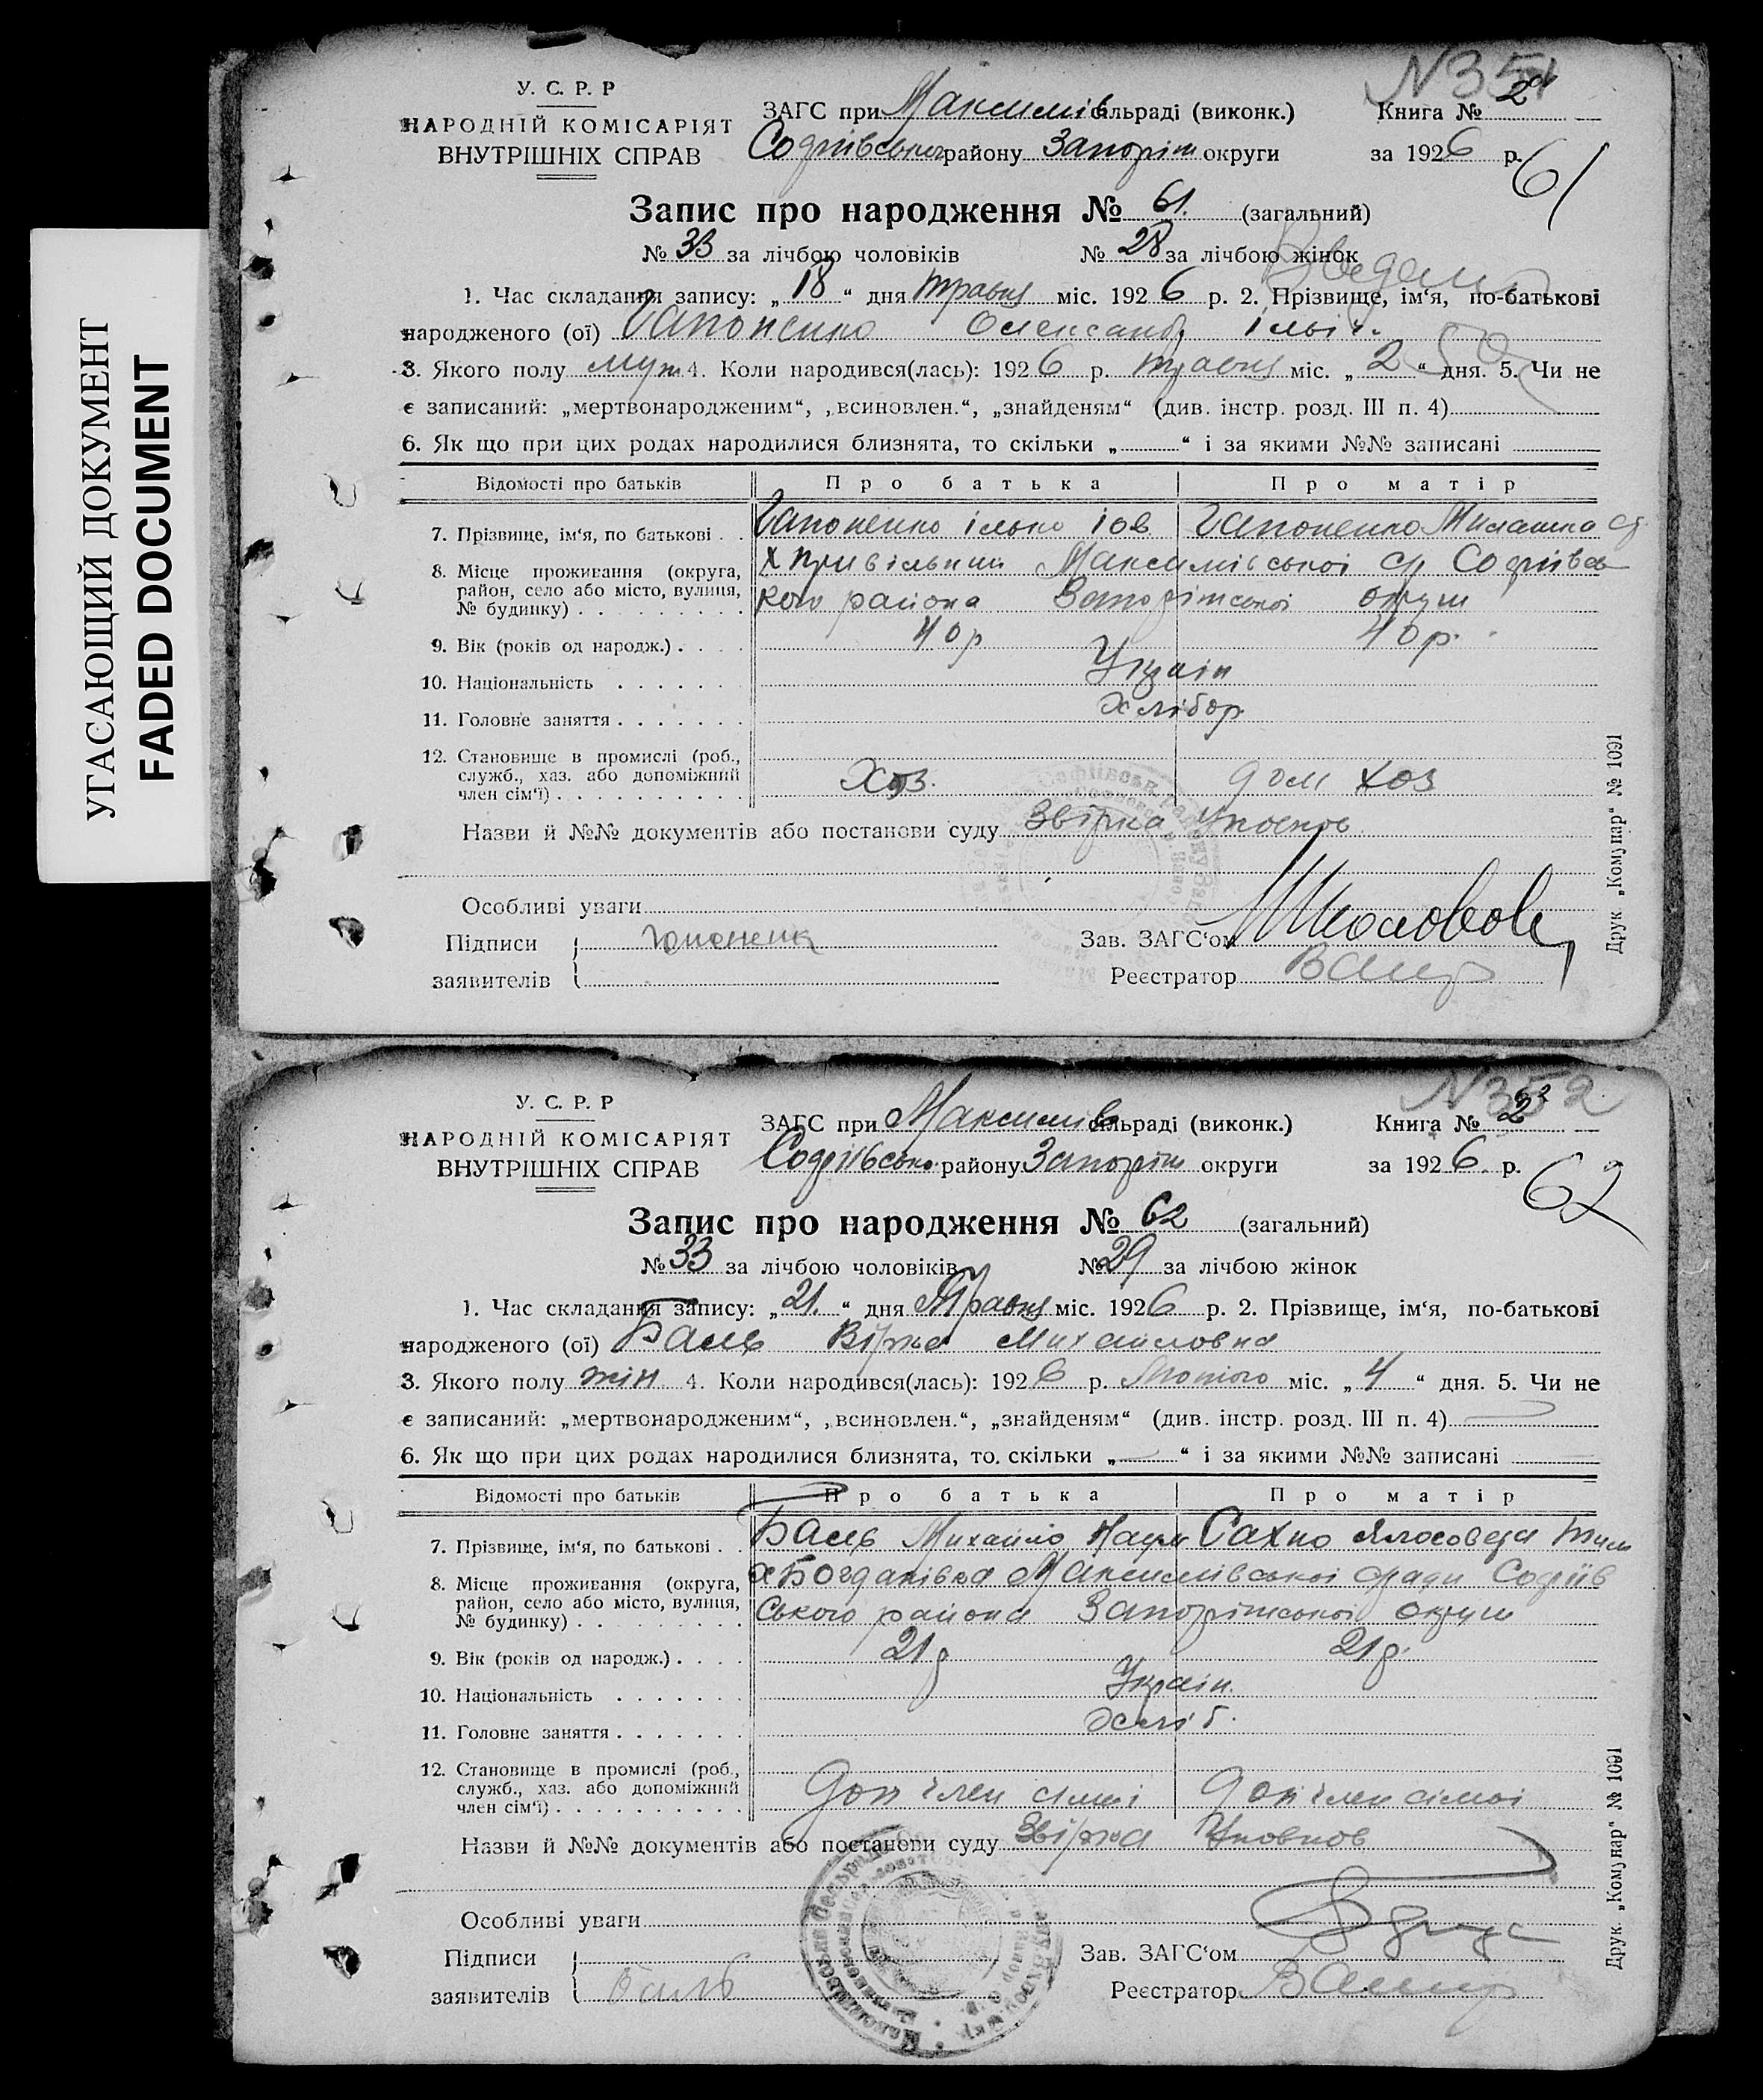 УГАСАЮЩИЙ ДОКУМЕНТ
FADED DOCUMENT
N351
У. С. Р. Р
НАРОДНІЙ КОМІСАРІЯТ
ВНУТРІШНІХ СПРАВ
ЗАГС при Максимів ільраді (виконк.)
Книга № 2
Софіївського району Запоріж округи
за 1926 р.
61
Запис про народження № 61. (загальний)
№ 33 за лічбою чоловіків № 28 за лічбою жінок
1. Час складання запису: „18“ дня травня міс. 1926 р. 2. Прізвище, ім‘я, по-батькові
народженого (ої) Гапоненко Олександр Ільїч.
3. Якого полу муж 4. Коли народився(лась): 1926 р. травня міс. „2“ дня. 5. Чи не
є записаний: „мертвонародженим“, „всиновлен.“, „знайденям“ (див. інстр. розд. III п. 4)
6. Як що при цих родах народилися близнята, то скільки „ “ і за якими №№ записані
Відомості про батьків Про батька Про матір
7. Прізвище, ім‘я, по батькові . . Гапоненко Ілько Іов Гапоненко
8. Місце проживання (округа, район, село або місто, вулиця, № будинку) . . . х Привільний Максимівської с/р Софіївсь
кого района Запоріжської округи
9. Вік (років од народж.) . . . . 40 р 40 р.
10. Національність . . . . . . Україн
11. Головне заняття . . . . . . . хлібор.
12. Становище в промислі (роб., служб., хаз. або допоміжний член сім‘ї) . . . Хоз. дом хоз
Назви й №№ документів або постанови суду Звірка
Особливі уваги
Підписи Гапоненк Зав. ЗАГС‘ом
заявителів Реєстратор
Друк. „Комунар“ № 1091
N352
У. С. Р. Р
НАРОДНІЙ КОМІСАРІЯТ
ВНУТРІШНІХ СПРАВ
ЗАГС при Максимів ільраді (виконк.)
Книга № 2
Софіївсько району Запоріж округи
за 1926 р.
62
Запис про народження № 62 (загальний)
№ 33 за лічбою чоловіків № 29 за лічбою жінок
1. Час складання запису: „21.“ дня Травня міс. 1926 р. 2. Прізвище, ім‘я, по-батькові
народженого (ої) Баль Вірка Михайловна
3. Якого полу жін 4. Коли народився(лась): 1926 р. Лютого міс. „4“ дня. 5. Чи не
є записаний: „мертвонародженим“, „всиновлен.“, „знайденям“ (див. інстр. розд. III п. 4)
6. Як що при цих родах народилися близнята, то скільки „ “ і за якими №№ записані
Відомості про батьків Про батька Про матір
7. Прізвище, ім‘я, по батькові . . Баль Михайло Наум Сахно
8. Місце проживання (округа, район, село або місто, вулиця, № будинку) . . . х Богданівка Максимівської с/ради Софіїв
ського района Запоріжської округи
9. Вік (років од народж.) . . . . 21 р 21 р.
10. Національність . . . . . . . Україн.
11. Головне заняття . . . . . . . хліб.
12. Становище в промислі (роб., служб., хаз. або допоміжний член сім‘ї) . . . Доп член сімьї Доп член сімьї
Назви й №№ документів або постанови суду Звірка
Особливі уваги
Підписи Зав. ЗАГС‘ом
заявителів Баль Реєстратор
Друк. „Комунар“ № 1091